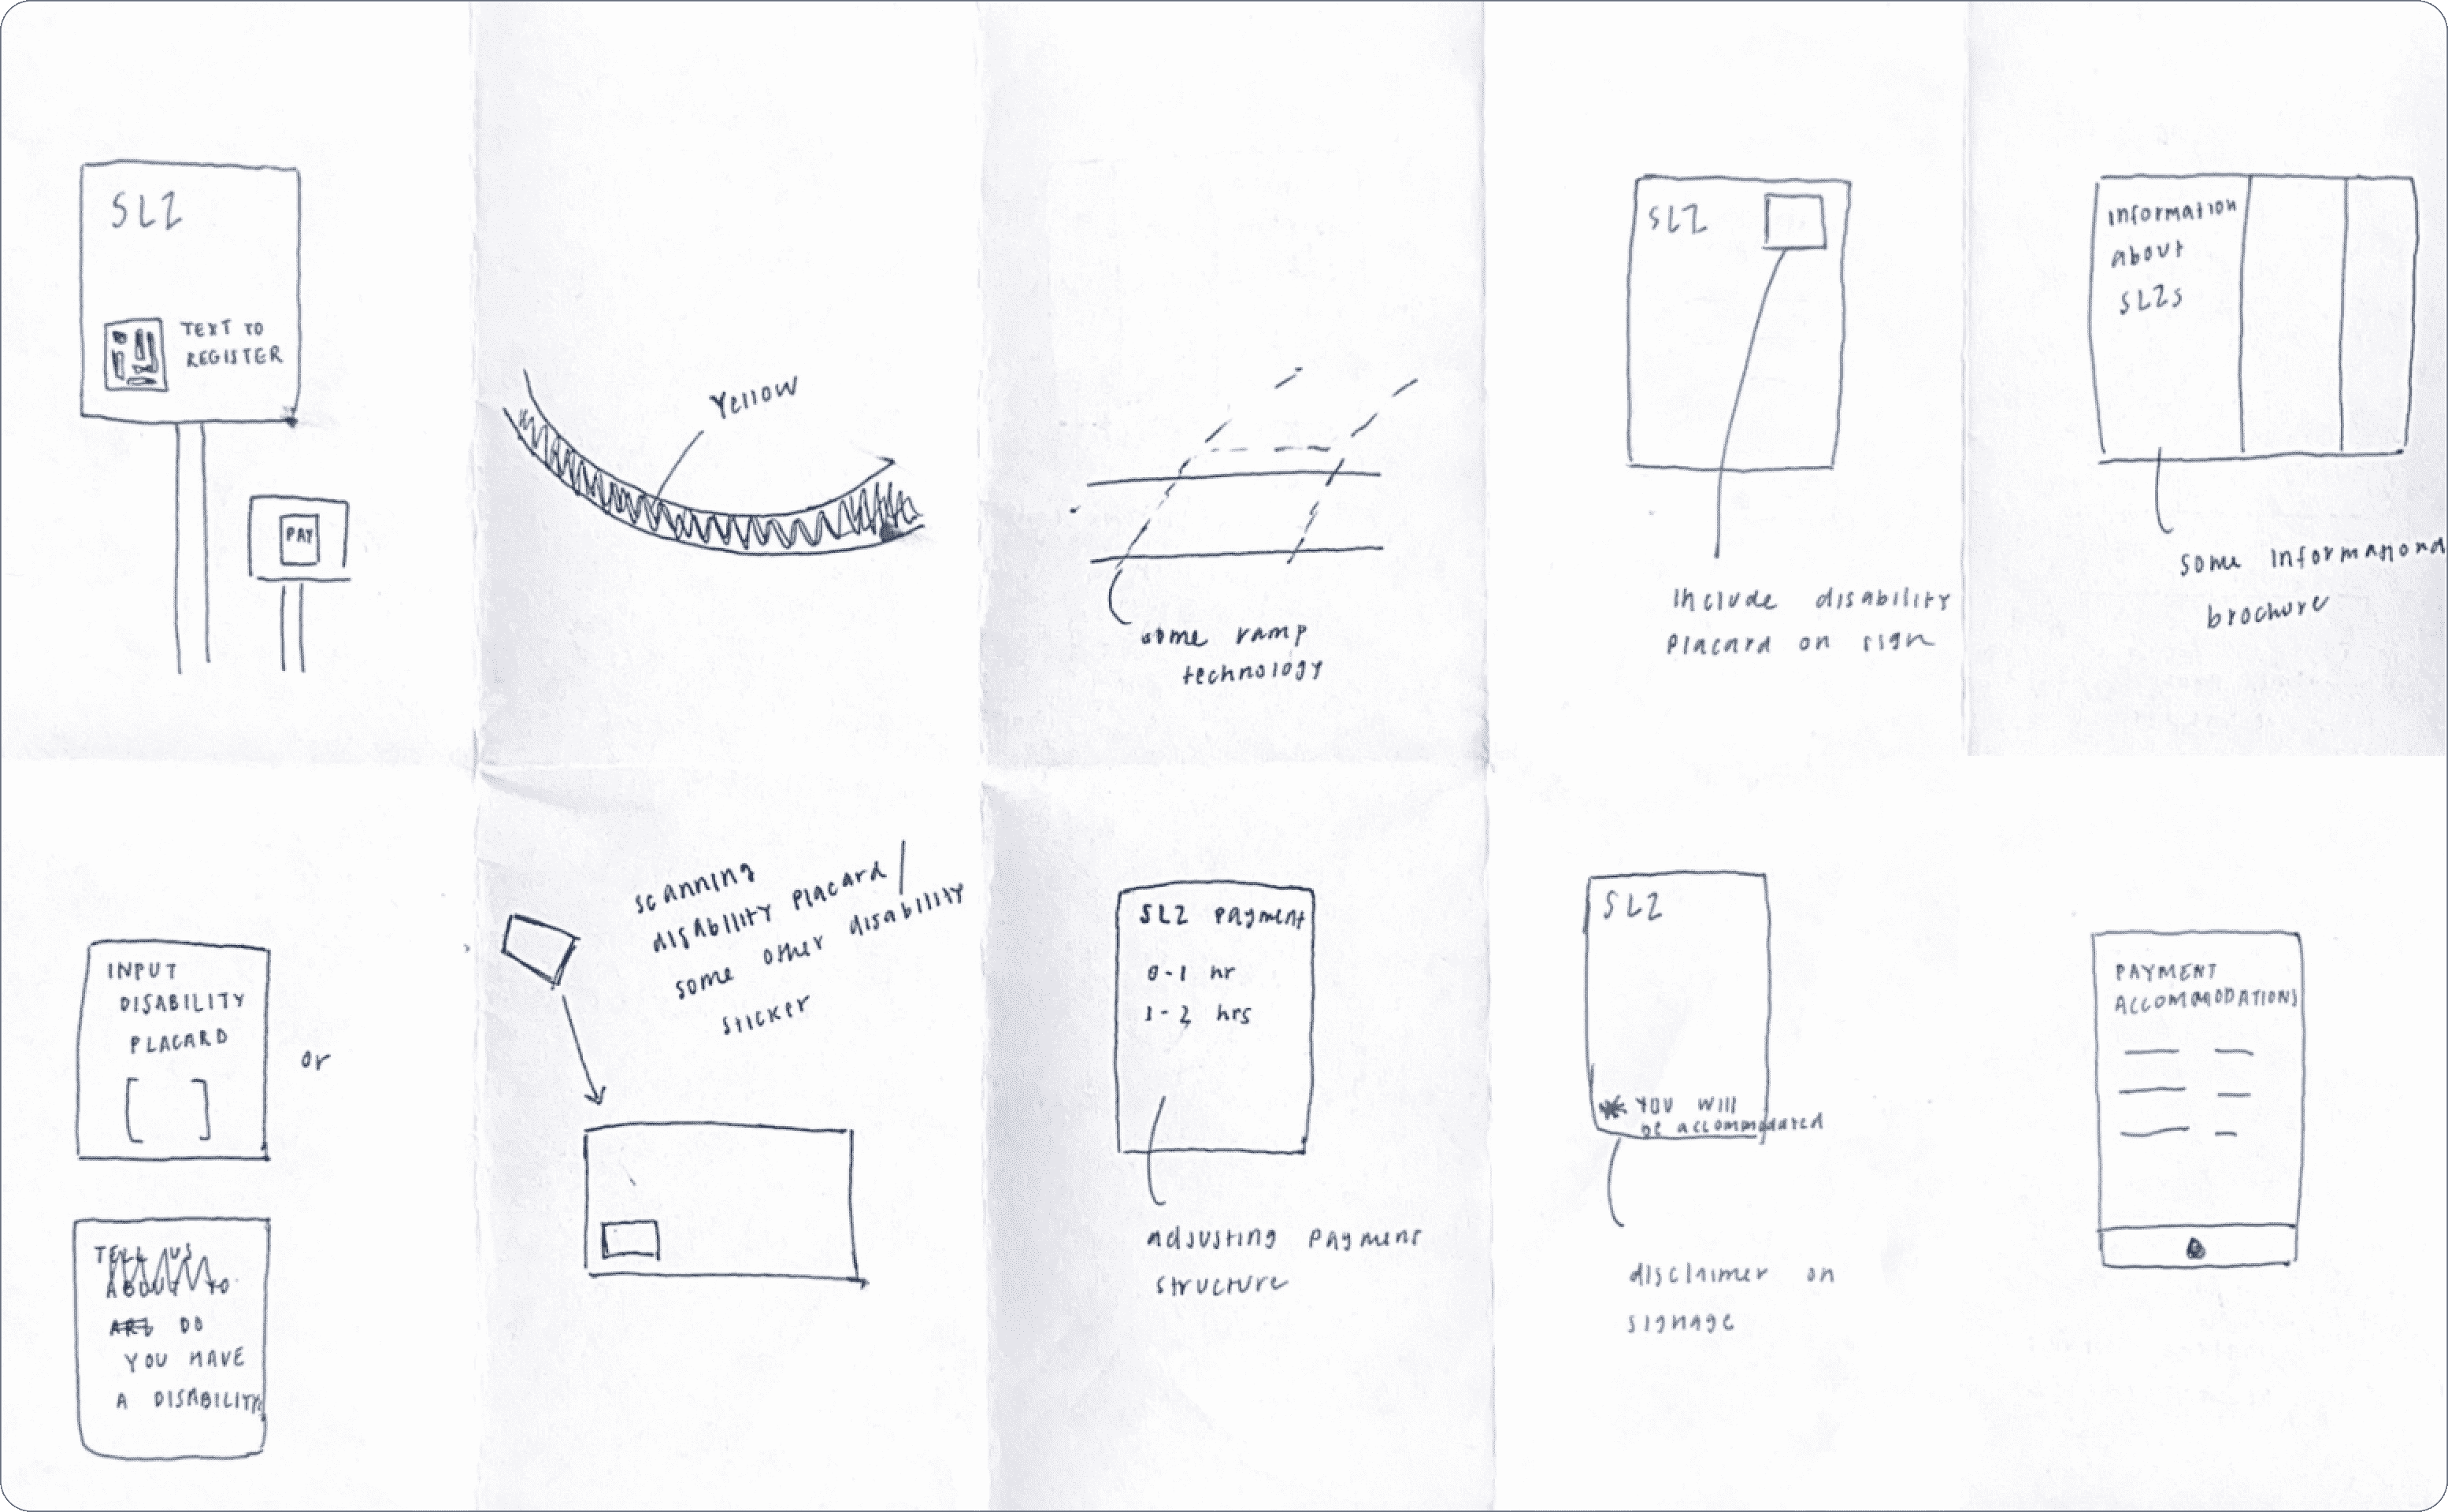 SLZ
TEXT TO
REGISTER
PAY
Yellow
some ramp
technology
SLZ
Include disability
placard on sign
Information
about
SLZs
some informationa
brochure
INPUT
DISABILITY
PLACARD
[ ]
or
TELL US
ABOUT YO
ARE DO
YOU HAVE
A DISABILITY
scanning
disability placard/
some other disability
sticker
SLZ payment
0-1 hr
1-2 hrs
adjusting payment
structure
SLZ
* YOU WILL
be accommodated
disclaimer on
signage
PAYMENT
ACCOMMODATIONS